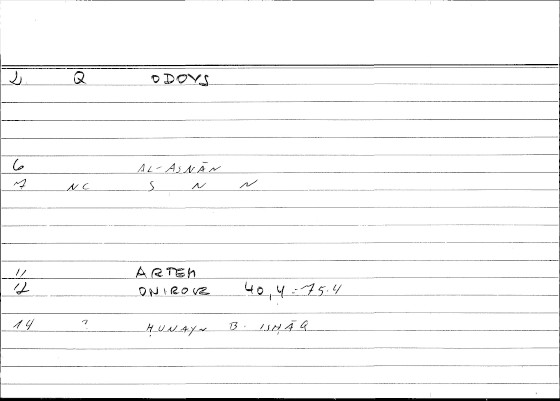 Q ODOYS
6 AL-ASNĀN
7 NC S N N
11 ARTEM
12 ONIROVE 40,4=75.4
14 ? ḤUNAYN B. ISḤĀQ